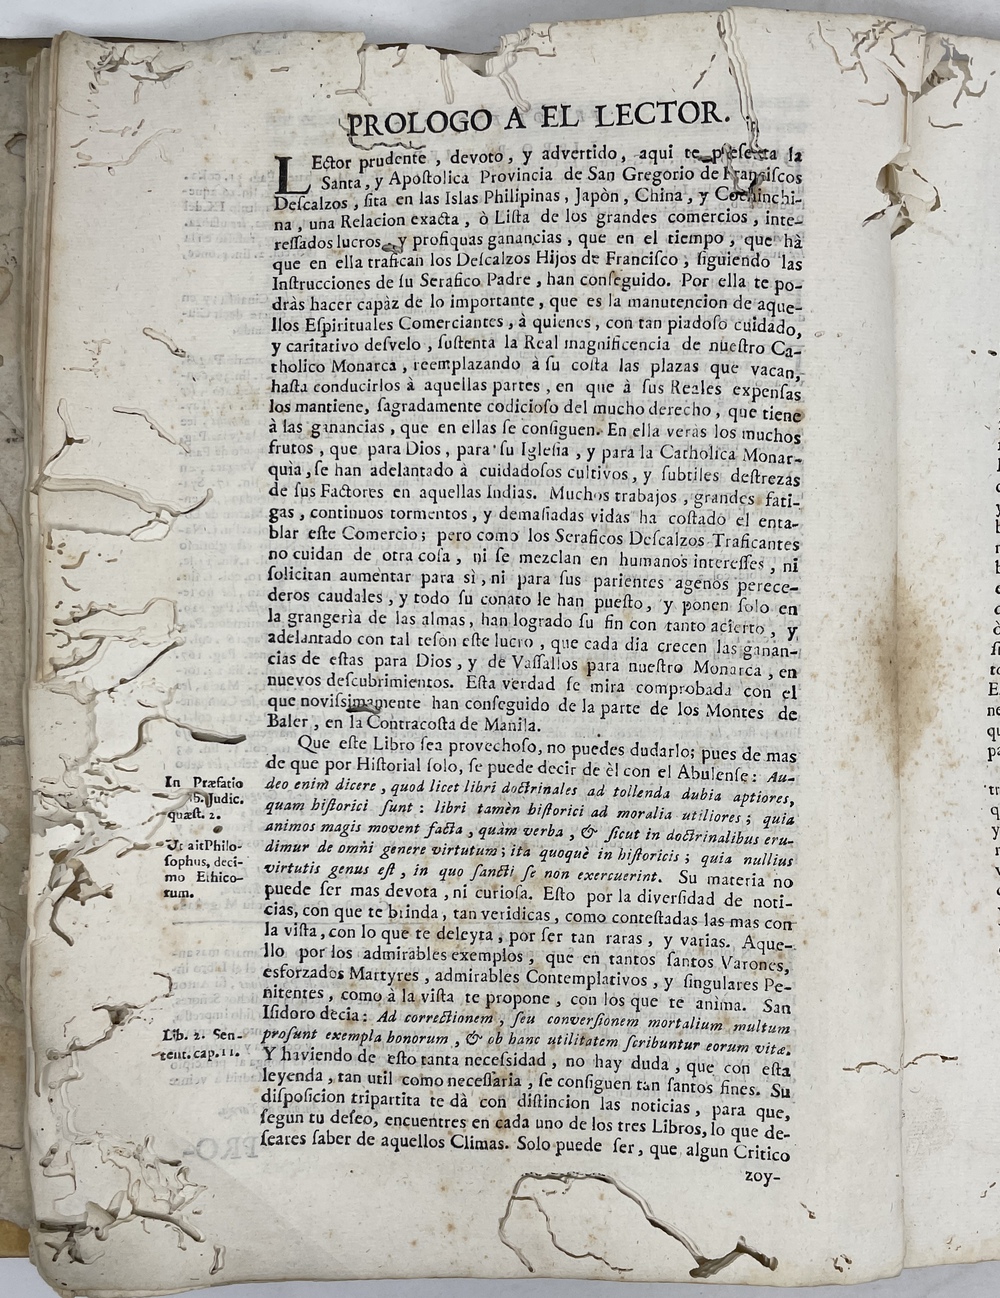 PROLOGO A EL LECTOR.
LEctor prudente, devoto, y advertido, aqui te presenta la
Santa, y Apoſtolica Provincia de San Gregorio de Franciſcos
Deſcalzos, ſita en las Islas Philipinas, Japòn, China, y Cochinchi-
na, una Relacion exacta, ò Liſta de los grandes comercios, inte-
reſſados lucros, y profiquas ganancias, que en el tiempo, que hà
que en ella trafican los Deſcalzos Hijos de Franciſco, ſiguiendo las
Inſtrucciones de ſu Serafico Padre, han conſeguido. Por ella te po-
dràs hacer capàz de lo importante, que es la manutencion de aque-
llos Eſpirituales Comerciantes, à quienes, con tan piadoſo cuidado,
y caritativo deſvelo, ſuſtenta la Real magnificencia de nueſtro Ca-
tholico Monarca, reemplazando à ſu coſta las plazas que vacan,
haſta conducirlos à aquellas partes, en que à ſus Reales expenſas
los mantiene, ſagradamente codicioſo del mucho derecho, que tiene
à las ganancias, que en ellas ſe conſiguen. En ella veràs los muchos
frutos, que para Dios, para ſu Igleſia, y para la Catholica Monar-
quìa, ſe han adelantado à cuidadoſos cultivos, y ſubtiles deſtrezas
de ſus Factores en aquellas Indias. Muchos trabajos, grandes fati-
gas, continuos tormentos, y demaſiadas vidas ha coſtado el enta-
blar eſte Comercio; pero como los Seraficos Deſcalzos Traficantes
no cuidan de otra coſa, ni ſe mezclan en humanos intereſſes, ni
ſolicitan aumentar para sì, ni para ſus parientes agenos perece-
deros caudales, y todo ſu conato le han pueſto, y ponen ſolo en
la grangerìa de las almas, han logrado ſu fin con tanto acierto, y
adelantado con tal teſon eſte lucro, que cada dia crecen las ganan-
cias de eſtas para Dios, y de Vaſſallos para nueſtro Monarca, en
nuevos deſcubrimientos. Eſta verdad ſe mira comprobada con el
que noviſsimamente han conſeguido de la parte de los Montes de
Baler, en la Contracoſta de Manila.
Que eſte Libro ſea provechoſo, no puedes dudarlo; pues de mas
de que por Hiſtorial ſolo, ſe puede decir de èl con el Abulenſe: Au-
deo enim dicere, quod licet libri doctrinales ad tollenda dubia aptiores,
quam hiſtorici ſunt: libri tamèn hiſtorici ad moralia utiliores; quia
animos magis movent facta, quàm verba, & ſicut in doctrinalibus eru-
dimur de omni genere virtutum; ita quoquè in hiſtoricis; quia nullius
virtutis genus eſt, in quo ſancti ſe non exercuerint. Su materia no
puede ſer mas devota, ni curioſa. Eſto por la diverſidad de noti-
cias, con que te brinda, tan veridicas, como conteſtadas las mas con
la viſta, con lo que te deleyta, por ſer tan raras, y varias. Aque-
llo por los admirables exemplos, que en tantos ſantos Varones,
esforzados Martyres, admirables Contemplativos, y ſingulares Pe-
nitentes, como à la viſta te propone, con los que te anìma. San
Iſidoro decia: Ad correctionem, ſeu converſionem mortalium multum
proſunt exempla bonorum, & ob hanc utilitatem ſcribuntur eorum vitæ.
Y haviendo de eſto tanta neceſsidad, no hay duda, que con eſta
leyenda, tan util como neceſſaria, ſe conſiguen tan ſantos fines. Su
diſpoſicion tripartita te dà con diſtincion las noticias, para que,
ſegun tu deſeo, encuentres en cada uno de los tres Libros, lo que de-
ſeares ſaber de aquellos Climas. Solo puede ſer, que algun Critico
zoy-
In Præfatio
b. Judic.
quæſt. 2.
Ut ait Philo-
ſophus, deci-
mo Ethico-
rum.
Lib. 2. Sen-
tent. cap. 11.